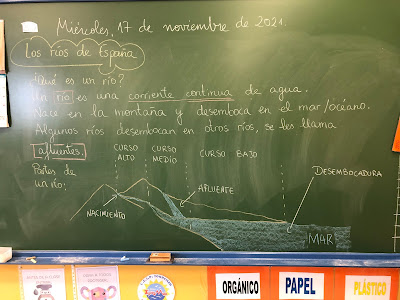 Miércoles, 17 de noviembre de 2021.
Los ríos de España
¿Qué es un río?
Un río es una corriente continua de agua.
Nace en la montaña y desemboca en el mar/océano.
Algunos ríos desembocan en otros ríos, se les llama
afluentes.
CURSO ALTO
CURSO MEDIO
CURSO BAJO
Partes de un río:
NACIMIENTO
AFLUENTE
DESEMBOCADURA
MAR
ORGÁNICO
PAPEL
PLÁSTICO